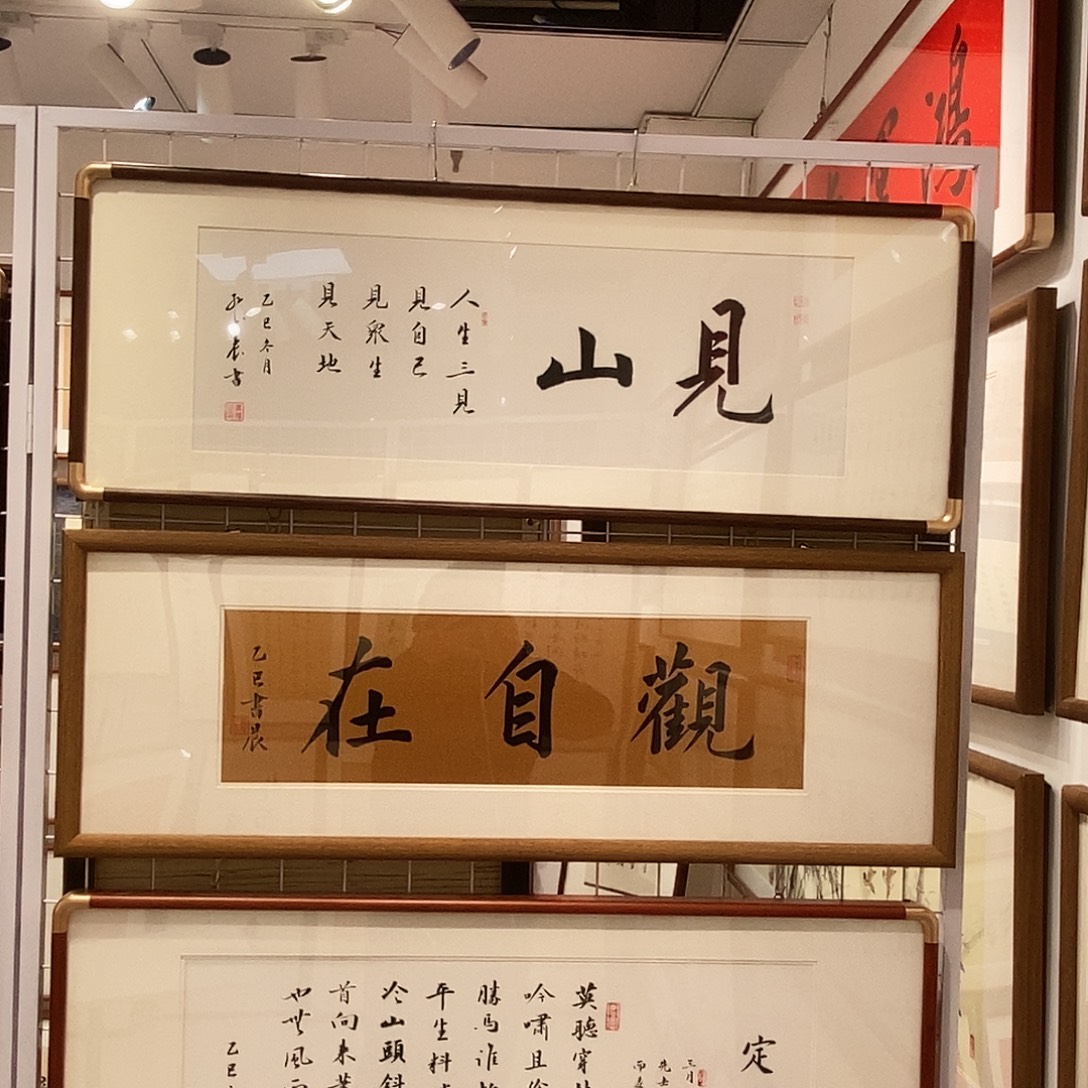 鴻
見山
人生三見
見自己
見衆生
見天地
乙巳冬月
觀自在
乙巳書晨
定
三月
先去
莫聽穿
吟嘯且
勝馬誰
平生料
冷山頭斜
首向來
也無風
乙巳